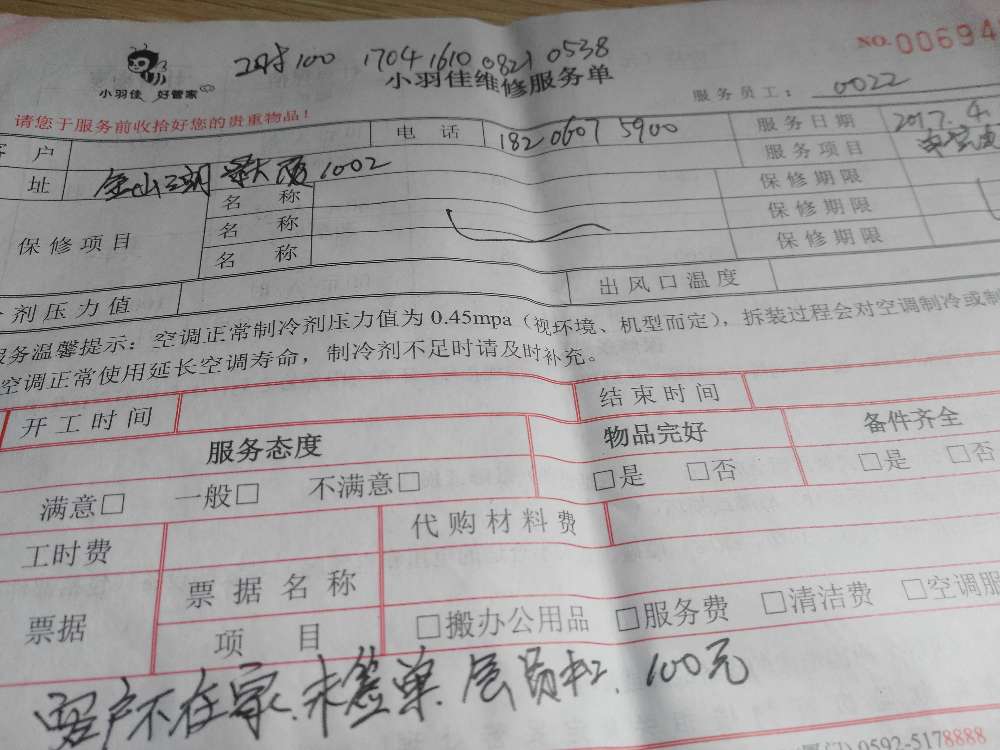 2时 100 1704 1610 0821 0538
NO. 00694
小羽佳 好管家
小羽佳维修服务单
服务员工： 0022
请您于服务前收拾好您的贵重物品！
客 户 电 话 182 0607 5900 服务日期 2017.4
址 金山 1002 服务项目
保修项目 名 称 保修期限
名 称 保修期限
名 称 保修期限
剂压力值 出风口温度
服务温馨提示：空调正常制冷剂压力值为 0.45mpa（视环境、机型而定），拆装过程会对空调制冷或制
空调正常使用延长空调寿命，制冷剂不足时请及时补充。
开工时间 结束时间
服务态度 物品完好 备件齐全
满意□ 一般□ 不满意□ □是 □否 □是 □否
工时费 代购材料费
票据 票据名称
项 目 □搬办公用品 □服务费 □清洁费 □空调服
客户不在家、未签单 会员卡 100元
0592-5178888